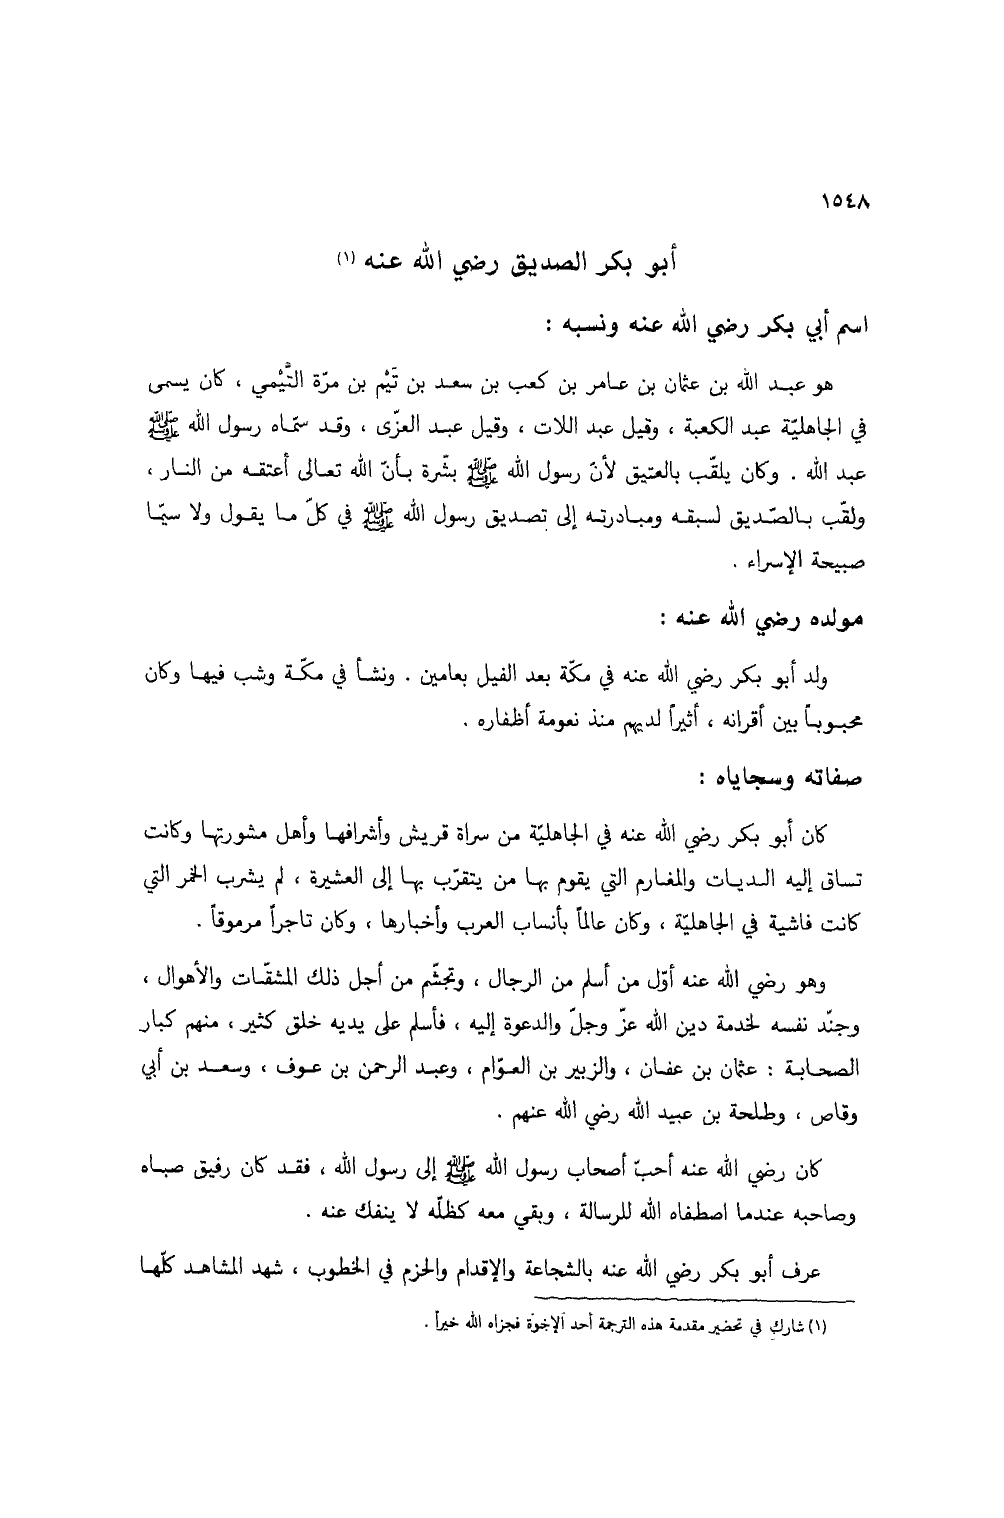 ١٥٤٨
أبو بكر الصديق رضي الله عنه (١)
اسم أبي بكر رضي الله عنه ونسبه :
هو عبد الله بن عثمان بن عامر بن كعب بن سعد بن تَيْم بن مرّة التَّيْمي ، كان يسمى
في الجاهليّة عبد الكعبة ، وقيل عبد اللات ، وقيل عبد العزّى ، وقد سمّاه رسول الله ﷺ
عبد الله . وكان يلقّب بالعتيق لأنّ رسول الله ﷺ بشّرة بأنّ الله تعالى أعتقه من النار ،
ولقّب بالصّديق لسبقه ومبادرته إلى تصديق رسول الله ﷺ في كلّ ما يقول ولا سيّما
صبيحة الإسراء .
مولده رضي الله عنه :
ولد أبو بكر رضي الله عنه في مكّة بعد الفيل بعامين . ونشأ في مكّة وشب فيها وكان
محبوباً بين أقرانه ، أثيراً لديهم منذ نعومة أظفاره .
صفاته وسجاياه :
كان أبو بكر رضي الله عنه في الجاهليّة من سراة قريش وأشرافها وأهل مشورتها وكانت
تساق إليه الديات والمغارم التي يقوم بها من يتقرّب بها إلى العشيرة ، لم يشرب الخمر التي
كانت فاشية في الجاهليّة ، وكان عالماً بأنساب العرب وأخبارها ، وكان تاجراً مرموقاً .
وهو رضي الله عنه أوّل من أسلم من الرجال ، وتجشّم من أجل ذلك المشقّات والأهوال ،
وجنّد نفسه لخدمة دين الله عزّ وجلّ والدعوة إليه ، فأسلم على يديه خلق كثير ، منهم كبار
الصحابة : عثمان بن عفان ، والزبير بن العوّام ، وعبد الرحمن بن عوف ، وسعد بن أبي
وقاص ، وطلحة بن عبيد الله رضي الله عنهم .
كان رضي الله عنه أحبّ أصحاب رسول الله ﷺ إلى رسول الله ، فقد كان رفيق صباه
وصاحبه عندما اصطفاه الله للرسالة ، وبقي معه كظلّه لا ينفك عنه .
عرف أبو بكر رضي الله عنه بالشجاعة والإقدام والحزم في الخطوب ، شهد المشاهد كلّها
(١) شارك في تحضير مقدمة هذه الترجمة أحد الإخوة فجزاه الله خيراً .